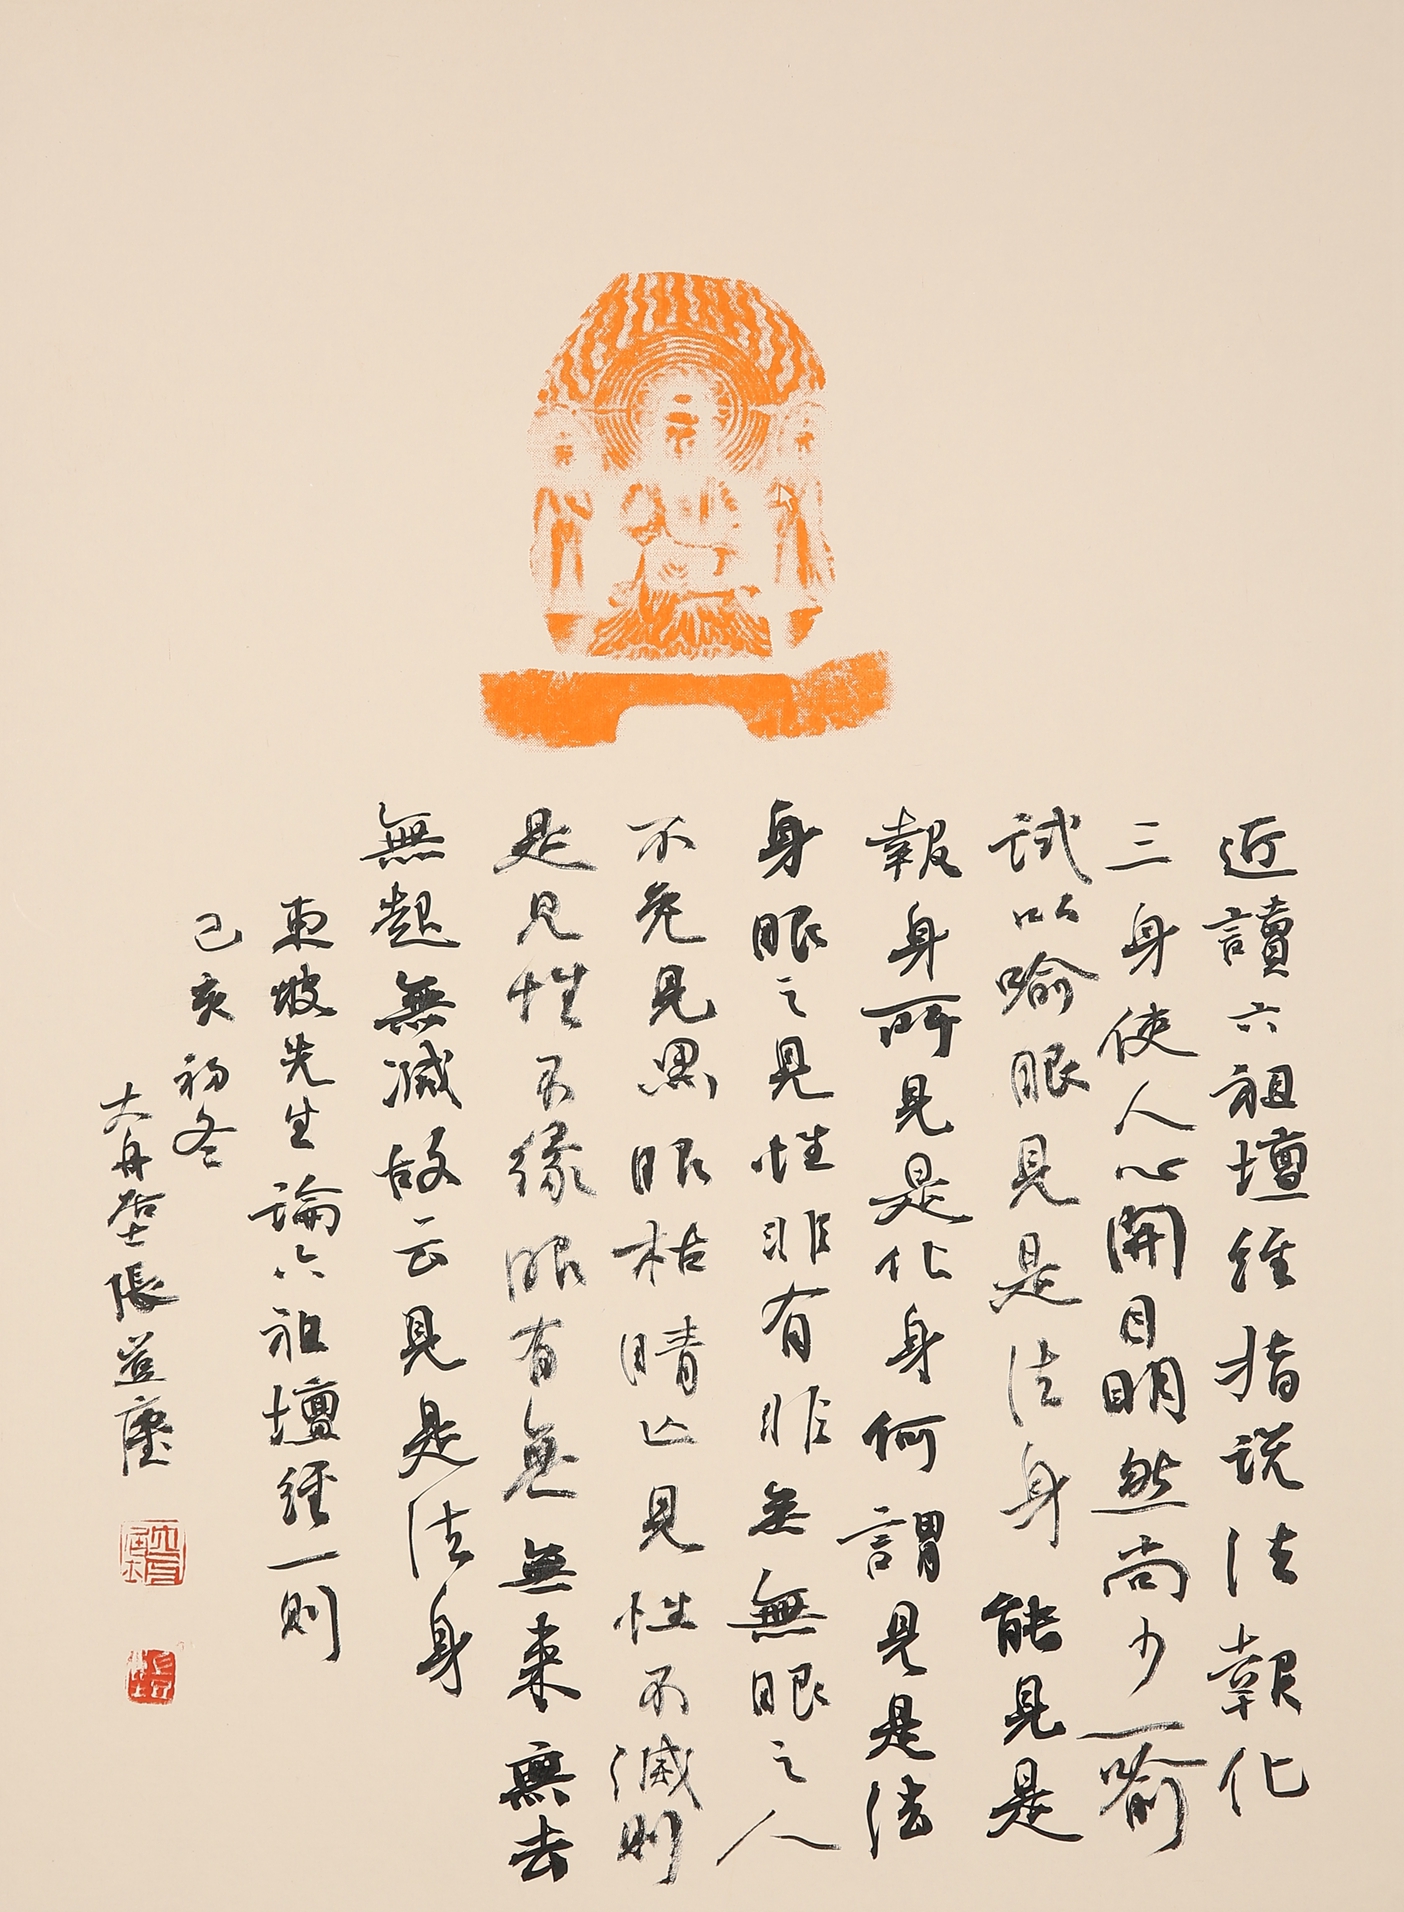 近讀六祖壇經指說法報化
三身使人心開目明然尚少一喻
試以喻眼見是法身能見是
報身所見是化身何謂見是法
身眼之見性非有非無無眼之人
不免見黑眼枯睛亡見性不滅則
是見性不緣眼有無無來無去
無起無滅故云見是法身
東坡先生論六祖壇經一則
己亥初冬
大舟居士張